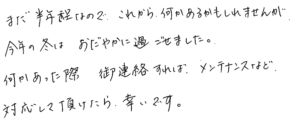 まだ半年程なので、これから何かあるかもしれませんが
今年の冬は おだやかに過ごせました。
何かあった際 御連絡すれば、メンテナンスなど、
対応して頂けたら、幸いです。